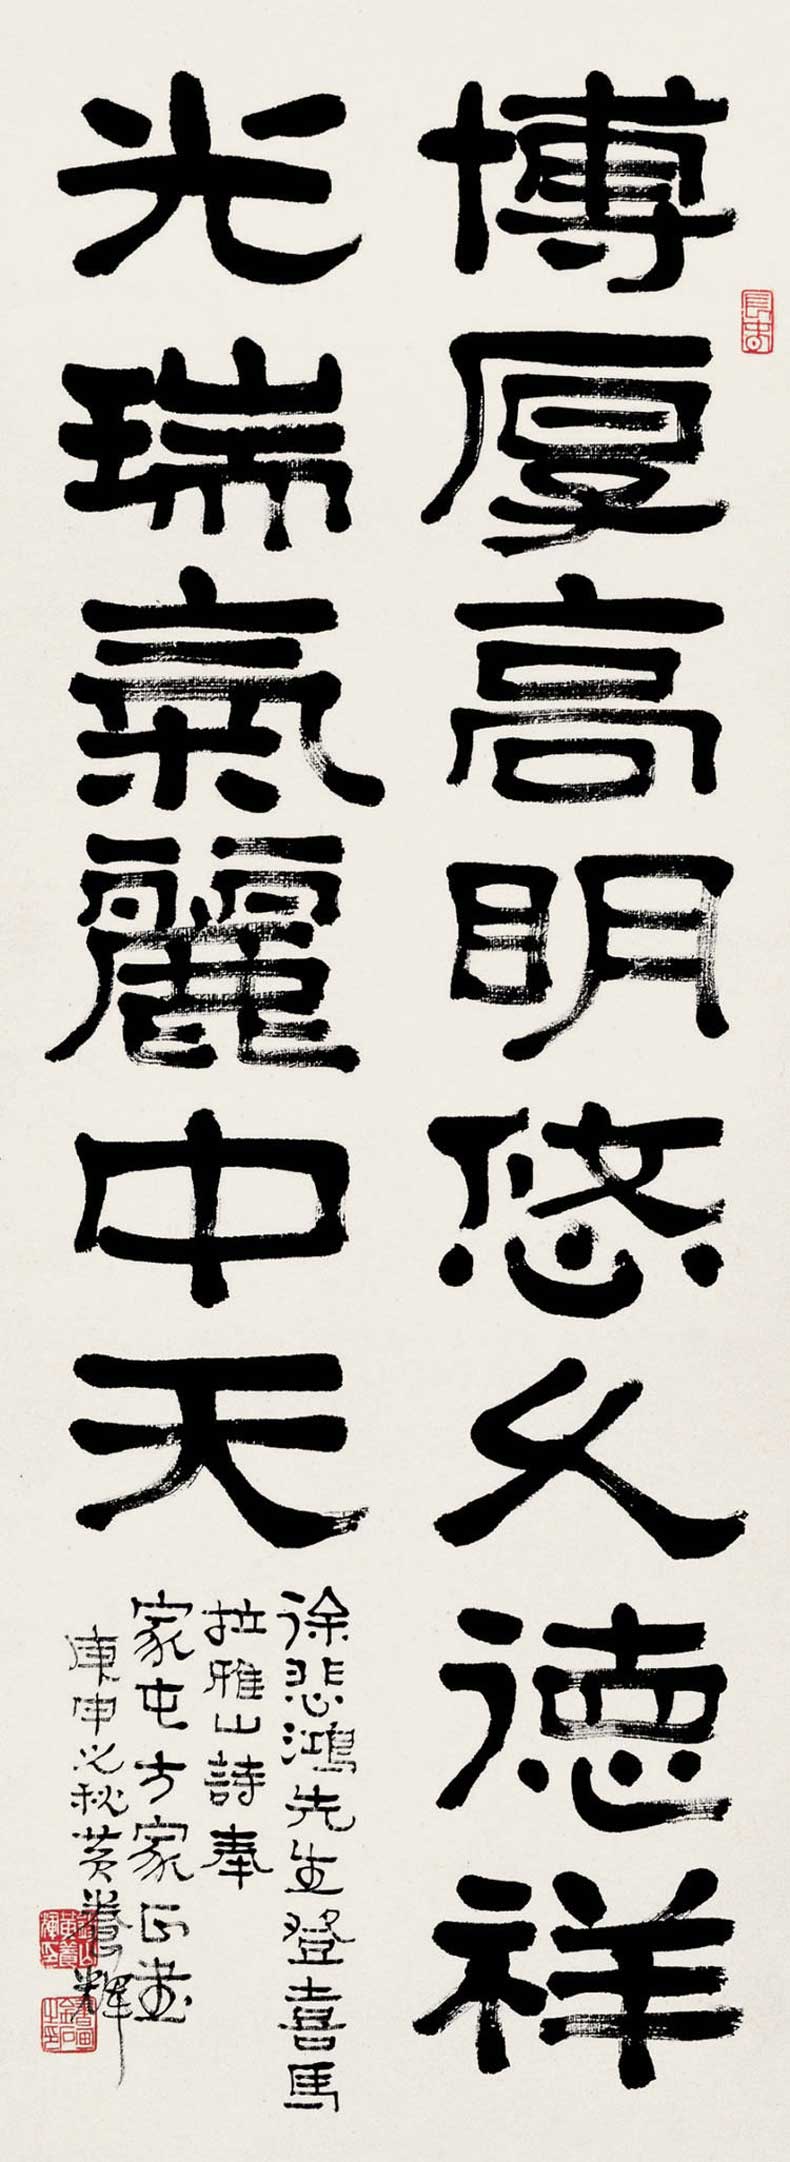 博厚高明悠久德祥
光瑞氣麗中天
徐悲鴻先生登喜馬
拉雅山詩奉
家屯方家正書
庚申之秋黃養輝